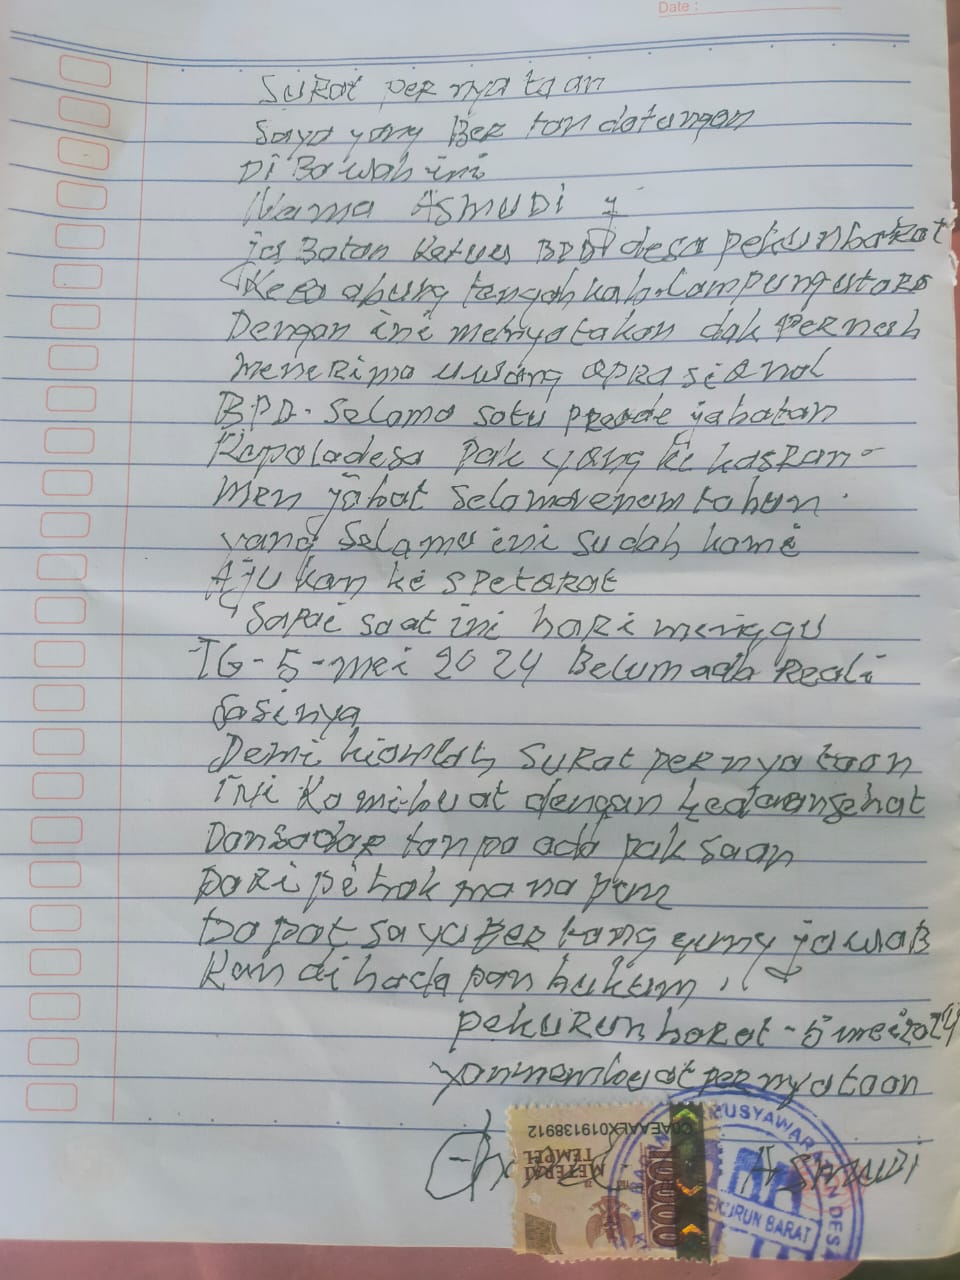 Date :
Surat pernyataan
Saya yang Ber tan datangan
Di Bawah ini
Nama ASMUDI
ja Batan Ketua BPD desa pekurun barat
Kec abung tengah kab. Lampung utara
Dengan ini menyatakan dak Pernah
menerima uwang oprasional
B.P.D. Selama satu preode jabatan
Kepala desa pak yang ki kasran
Men jabat Selama enam tahun.
yang Selama ini sudah kami
Aju kan ke spetorat
Sapai saat ini hari minggu
TG-5-mei 2024 Belum ada Reali
Sasinya
Demi kian lah Surat pernyataan
Ini Kami buat dengan sehat
Dan sadar tanpa ada paksaan
Dari pihak mana pun
Dapat saya Ber tang gung jawaB
Kan di hada pan hukum.
pekurun barat - 5 mei 2024
yan membuat pernyataan
COAEAAEX019138912
METERAI
TEMPEL
10000
MUSYAWARAH DESA
PEKURUN BARAT
ASMUDI